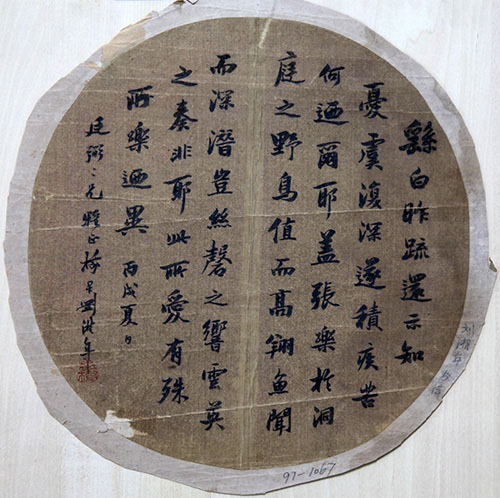 繇白昨疏還示知
憂虞復深遂積疾苦
何迺爾耶蓋張樂於洞
庭之野鳥值而高翔魚聞
而深潛豈絲磬之響雲英
之奏非耶此所愛有殊
所樂迺異 丙戌夏日
廷弼二兄 正 劉 年
97-1067